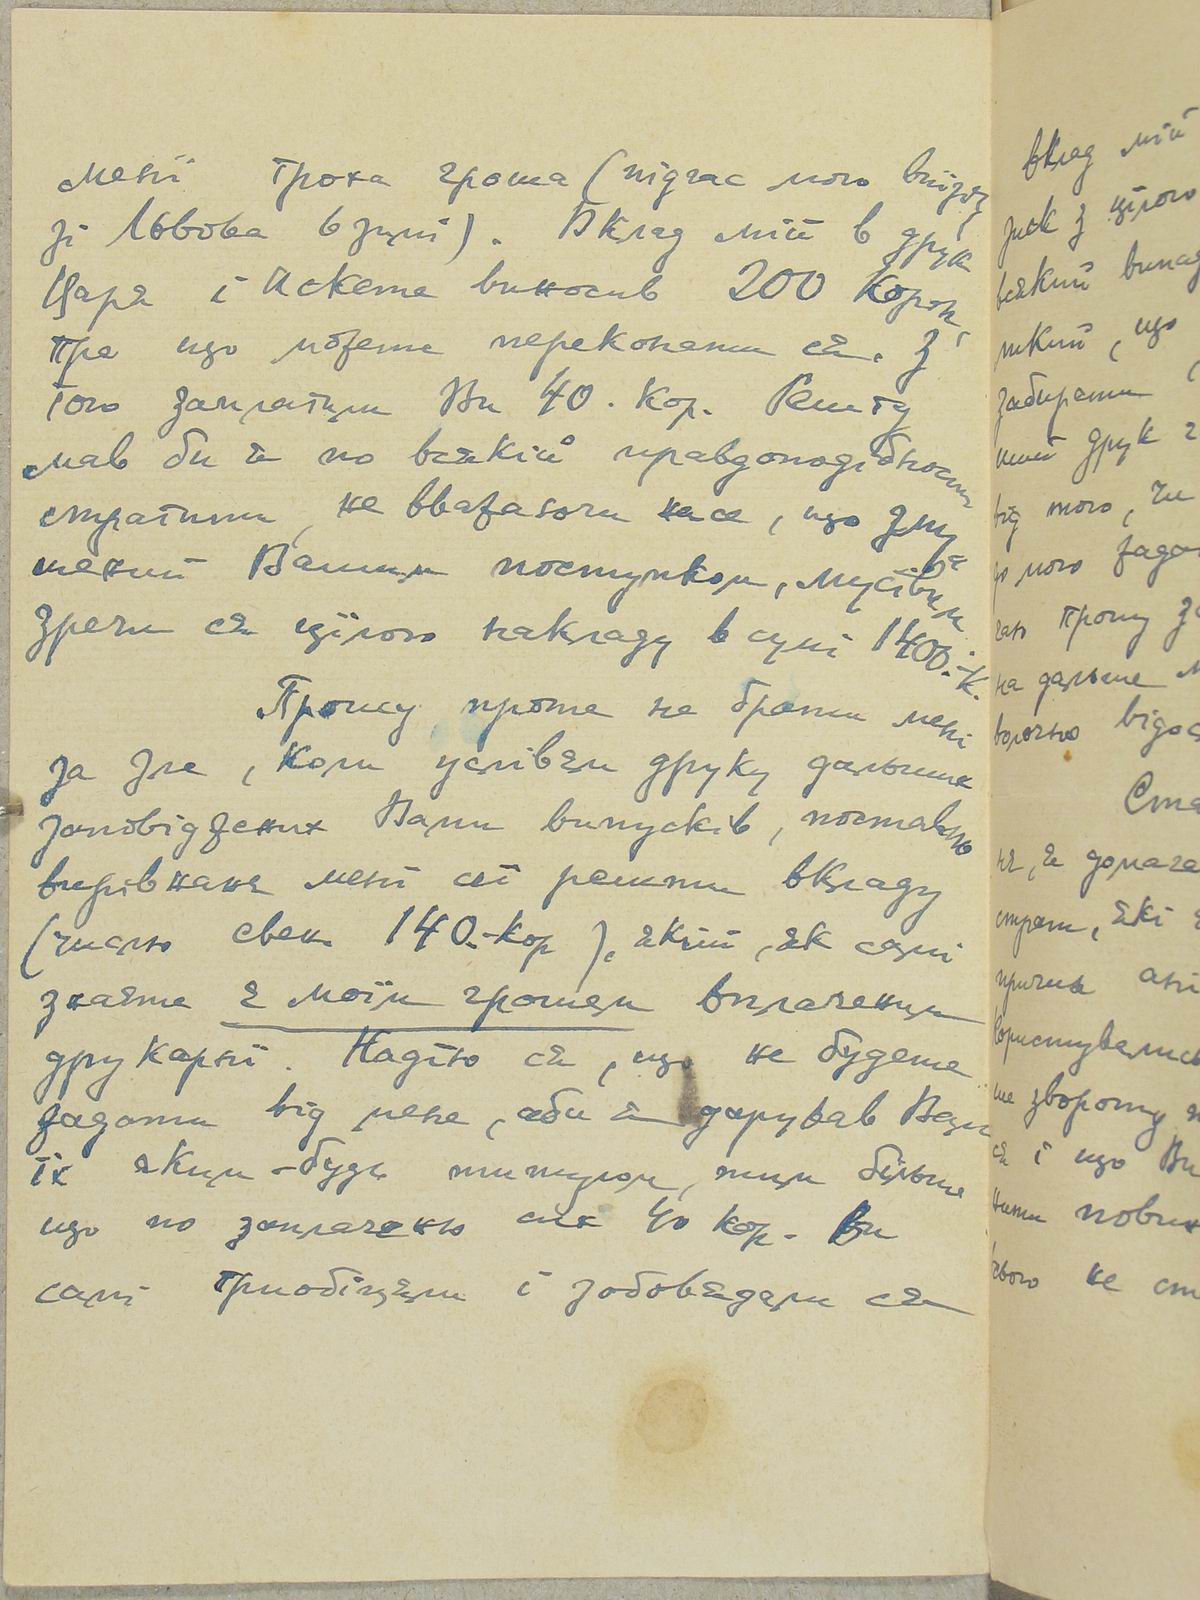 мені троха гроша (підчас мого виїзду
зі Львова в зимі). Вклад мій в друк
Царя і Аскета виносив 200 Корон,
про що можете переконати ся. З
того заплатили Ви 40. кор. Решту
мав би я по всякій правдоподібности
стратити, не вважаючи на се, що
Вашим поступком,
зречи ся цілого накладу в сумі 1400.-К.
Прошу проте не брати мені
за зле, коли услівям друку дальших
заповіджених Вами випусків, поставлю
вирівнанє мені сеї решти вкладу
(числю свен. 140.-кор), який, як самі
знаєте є моїм грошем виплаченим
друкарнї. Надїю ся, що не будете
жадати від мене, аби я дарував Вам
їх яким-будь титулом, тим більше
що по заплаченю сих 40 кор. Ви
самі приобіцяли і зобовязали ся
вклад мій
зиск з цілого
всякий випад
ткий, що
забирати
ший друк
від того, чи
до мого
прошу
на дальше
відос
Ста
нє, я домага
страт, які
причин ані
користувались
ше звороту
ся і що Ви
повин
свого не ст